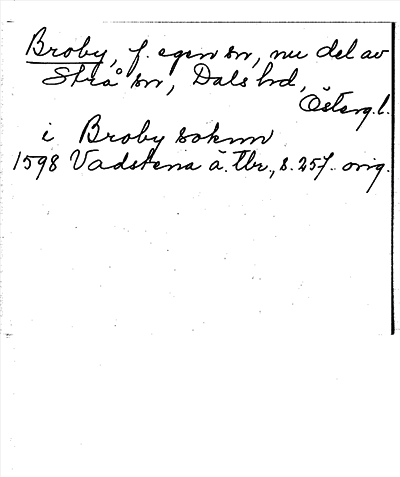 Broby, f. egen sn, nu del av
Strå sn, Dals hd,
Österg.l.
i Broby soknn
1598 Vadstena ä. tbr., s. 257. orig.